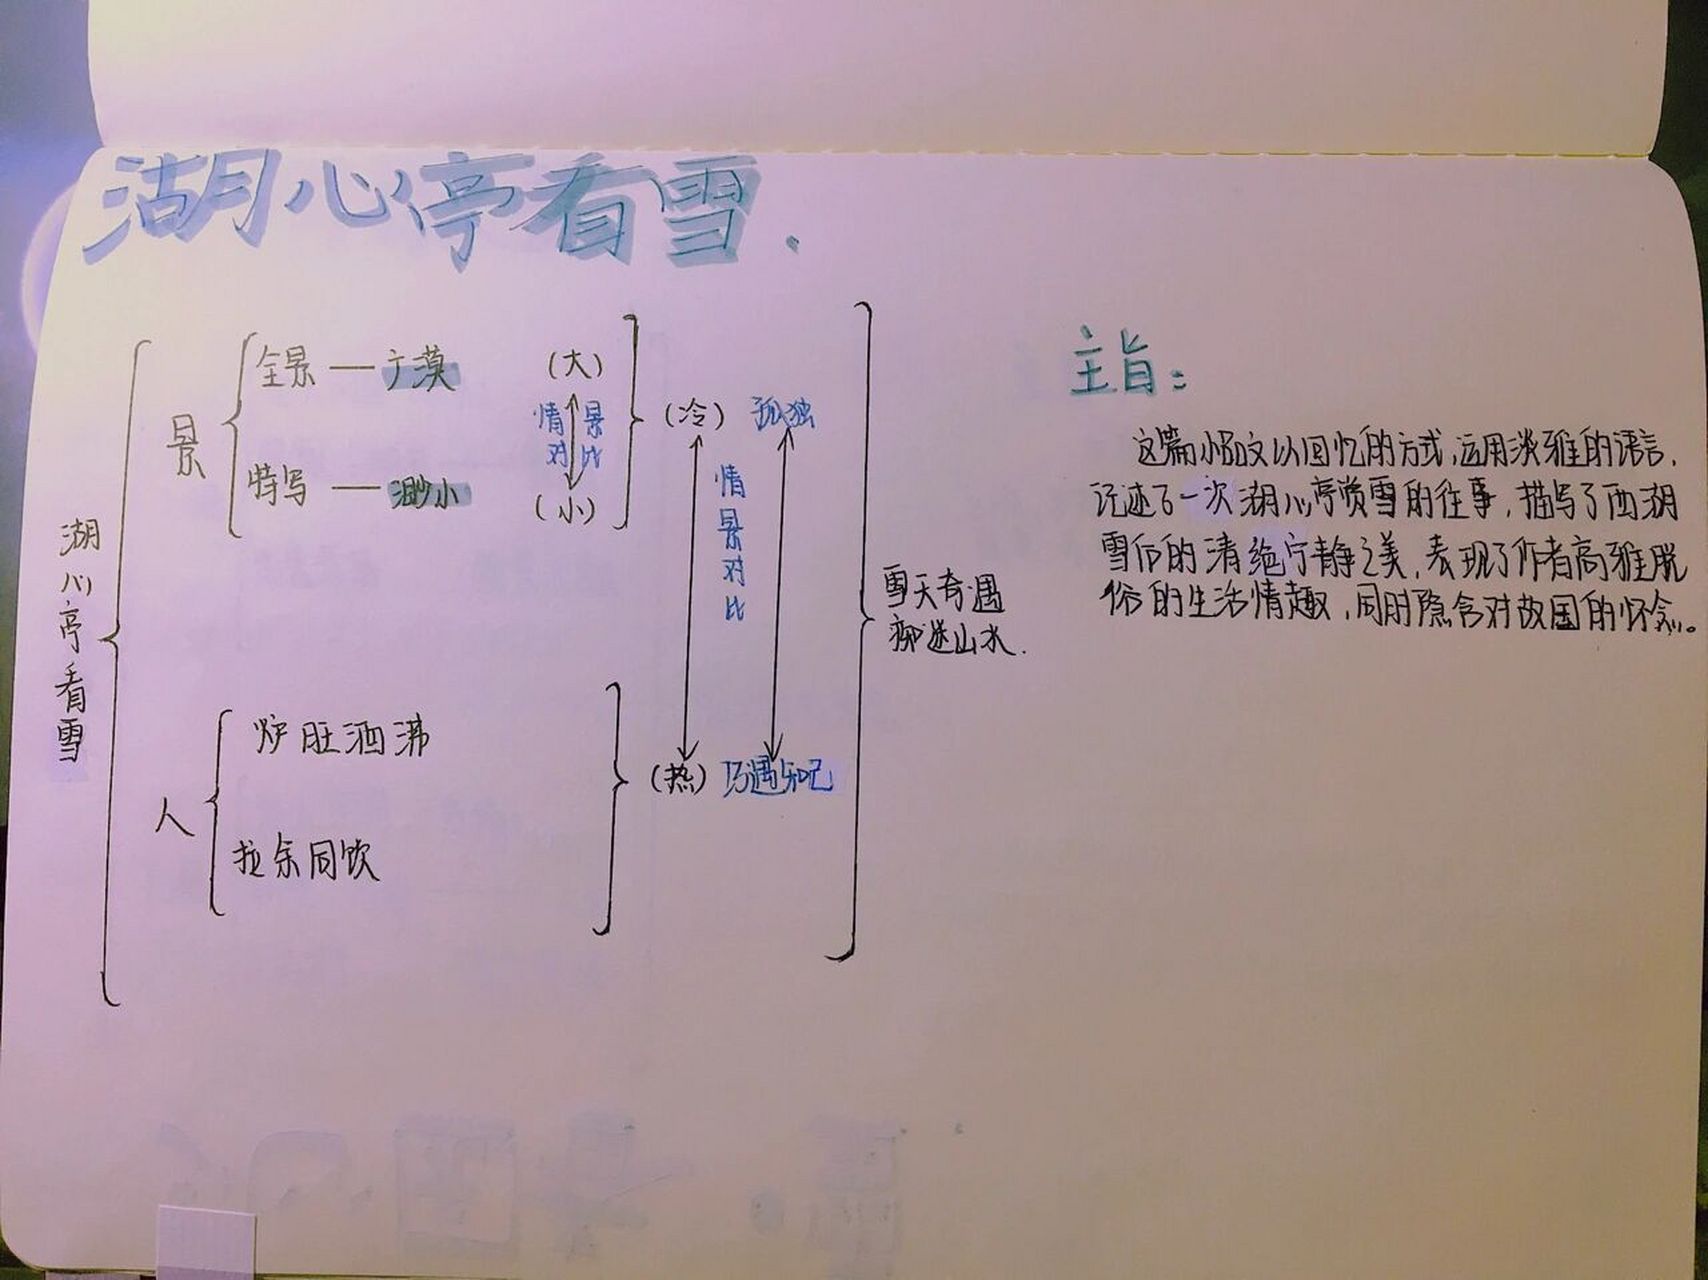 湖心亭看雪.
湖心亭看雪
景
全景—广漠 (大)
情景对比
特写—渺小 (小)
(冷) 孤独
情景对比
人
炉旺酒沸
拉余同饮
(热) 巧遇知己
雪天奇遇
痴迷山水.
主旨:
这篇小品文以回忆的方式,运用淡雅的语言,
记述了一次湖心亭赏雪的往事,描写了西湖
雪后的清绝宁静之美,表现了作者高雅脱
俗的生活情趣,同时隐含对故国的怀念。